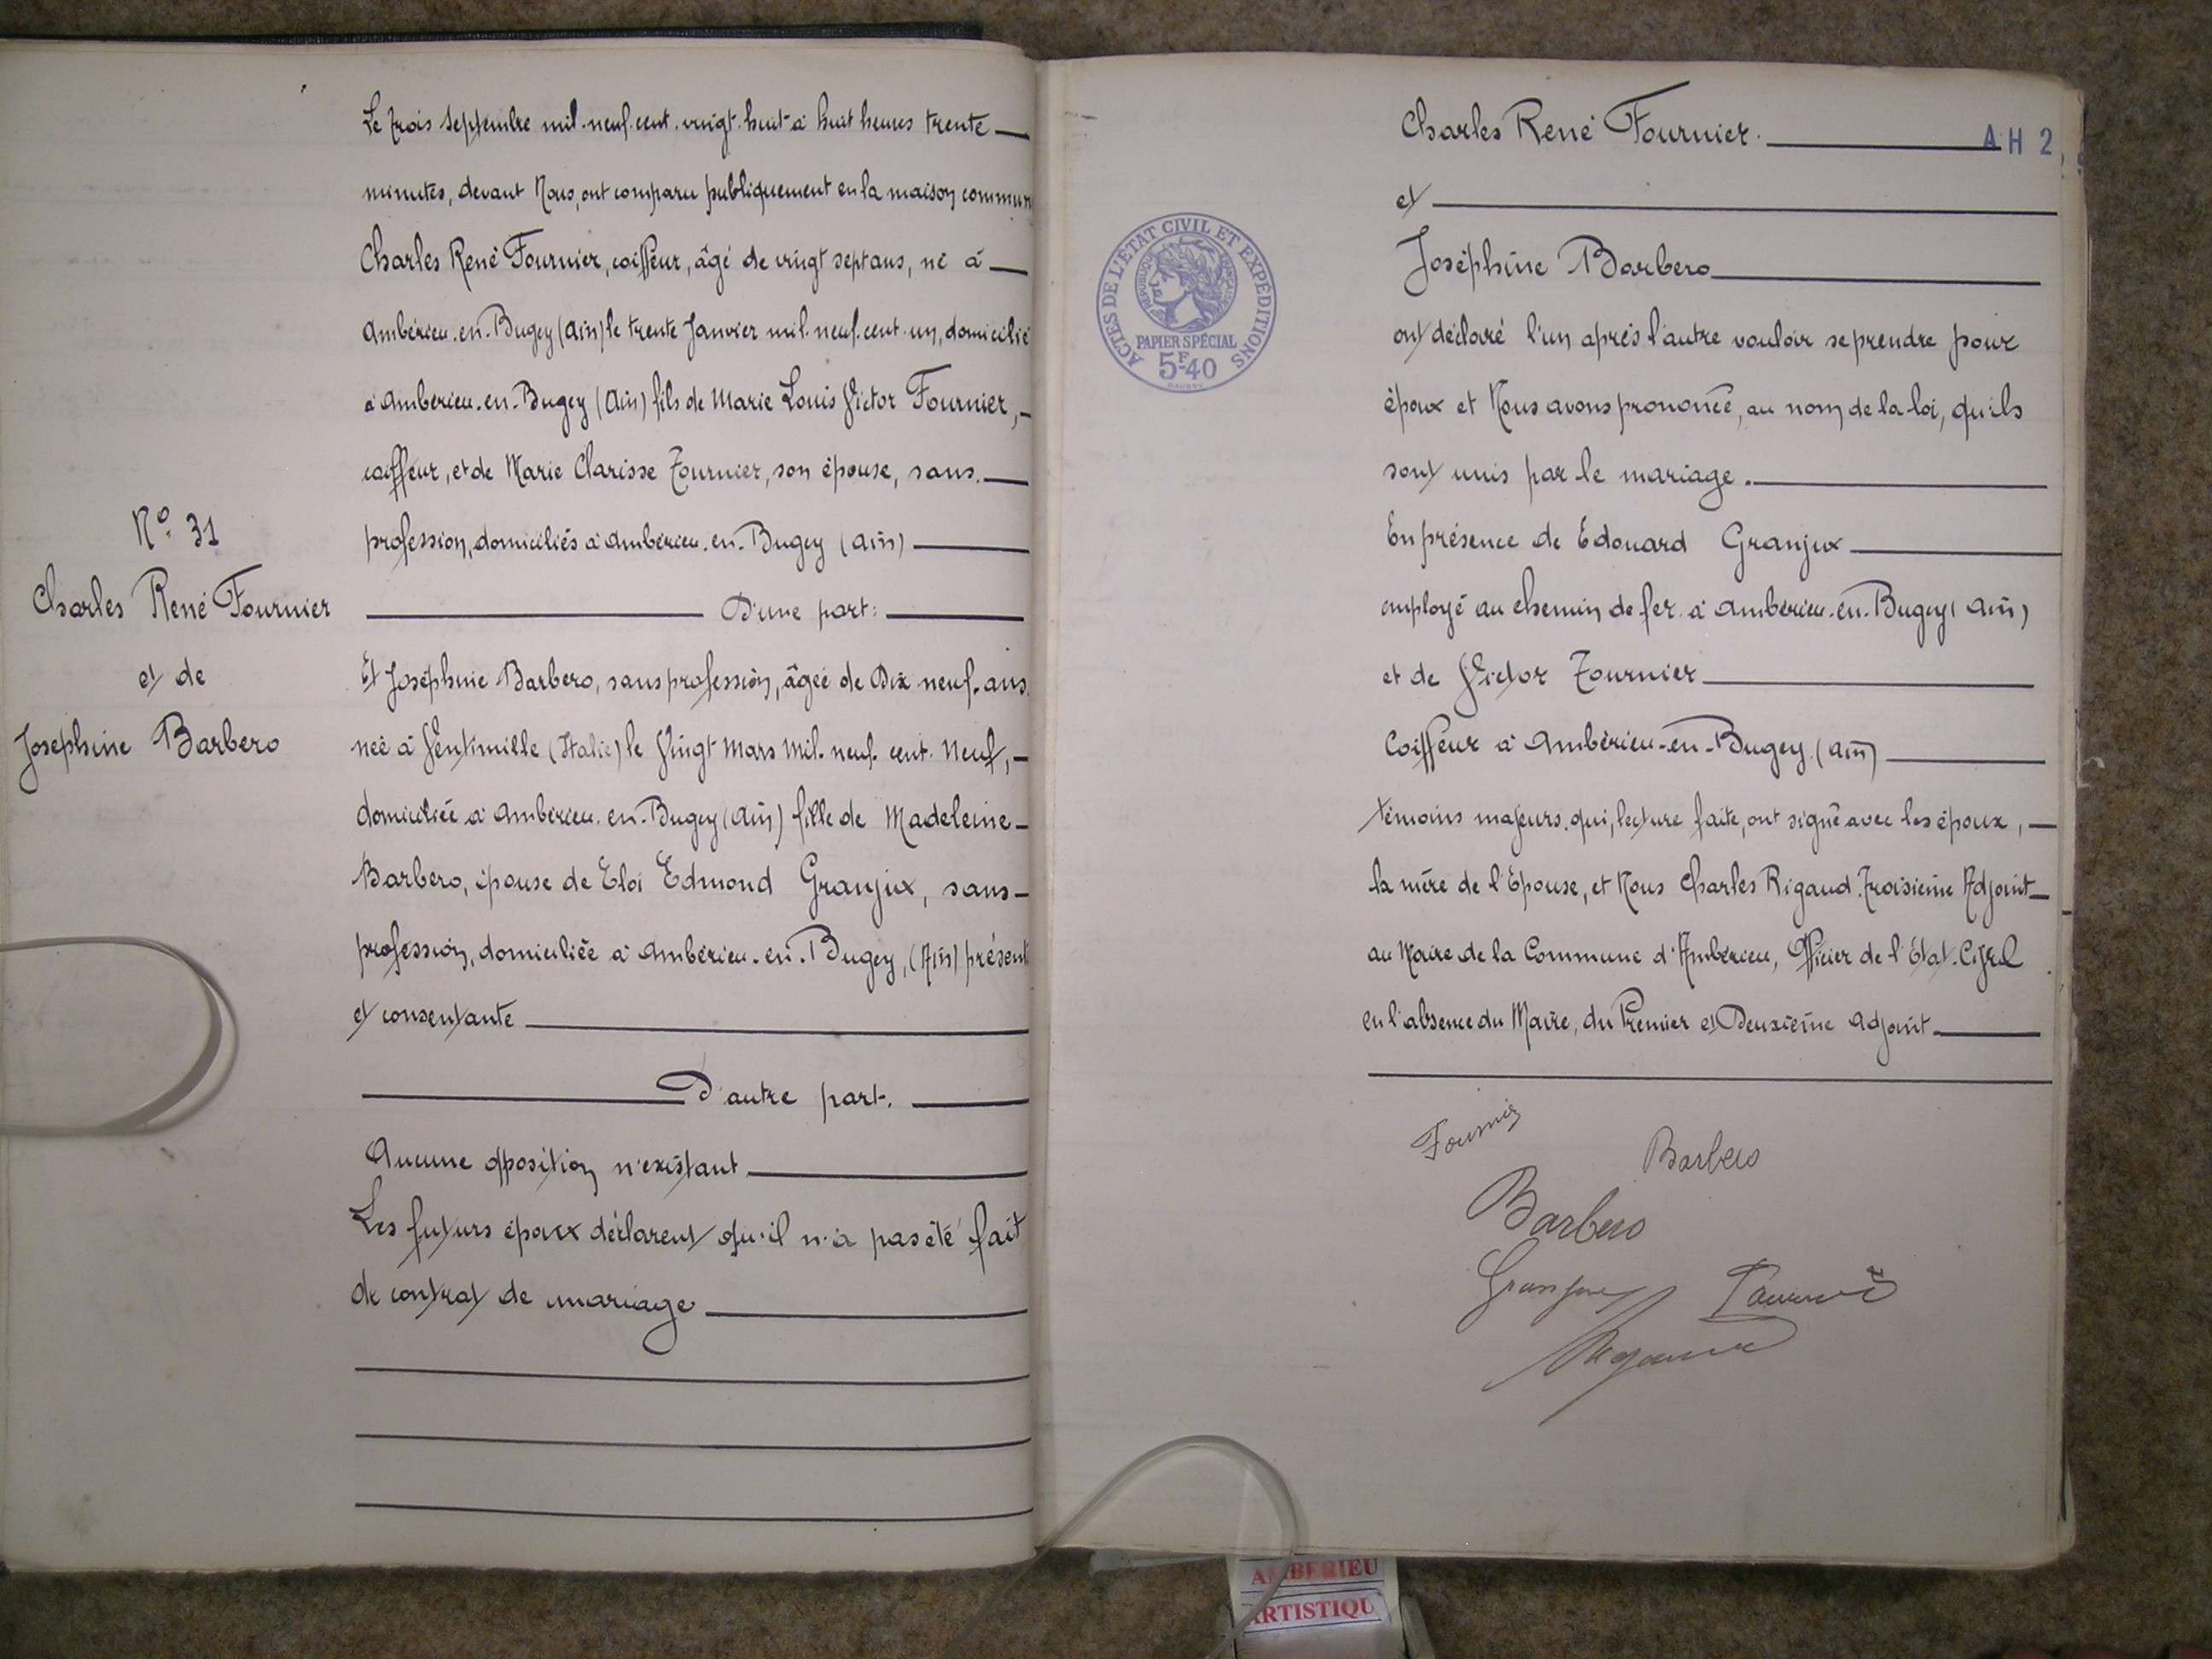 N° 31
Charles René Fournier
et de
Josephine Barbero
Le trois Septembre mil-neuf-cent-vingt-huit à huit heures trente
minutes, devant Nous, ont comparu publiquement en la maison commun
Charles René Fournier, coiffeur, âgé de vingt sept ans, né à
Ambérieu-en-Bugey (Ain) le trente Janvier mil-neuf-cent-un, domicilié
à Ambérieu-en-Bugey (Ain) fils de Marie Louis Victor Fournier,
coiffeur, et de Marie Clarisse Tournier, son épouse, sans
profession, domiciliés à Ambérieu-en-Bugey (Ain)
D'une part:
Et Joséphine Barbero, sans profession, âgée de Dix neuf-ans
née à Ventimille (Italie) le Vingt Mars Mil-neuf-cent-Neuf,
domiciliée à Ambérieu-en-Bugey (Ain) fille de Madeleine
Barbero, épouse de Eloi Edmond Granjux, sans
profession, domiciliée à Ambérieu-en-Bugey, (Ain) présent
et consentante
D'autre part.
Aucune opposition n'existant
Les futurs époux déclarent qu'il n'a pas été fait
de contrat de mariage
AH 2,
Charles René Fournier.
et
Joséphine Barbero
ont déclaré l'un après l'autre vouloir se prendre pour
époux et Nous avons prononcé, au nom de la loi, qu'ils
sont unis par le mariage.
En présence de Edouard Granjux
employé au chemin de fer à Ambérieu-en-Bugey (Ain)
et de Victor Tournier
Coiffeur à Ambérieu-en-Bugey (Ain)
témoins majeurs, qui, lecture faite, ont signé avec les époux,
la mère de l'Epouse, et Nous Charles Rigaud, Troisième Adjoint
au Maire de la Commune d'Ambérieu, Officier de l'Etat-Civil
en l'absence du Maire, du Premier et Deuxième Adjoint
ACTES DE L'ÉTAT CIVIL ET EXPÉDITIONS
RÉPUBLIQUE FRANÇAISE
PAPIER SPÉCIAL
5F40
Fournier
Barbero
Barbero
Granjux
AMBERIEU
ARTISTIQU